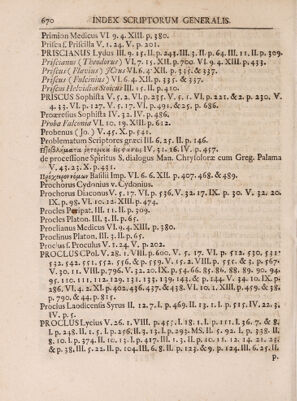 670 INDEX SCRIPTORUM GENERALIS.
Primion Medicus VI. 9. 4. XIII. p. 380.
Prisca s. Priscilla V. 1. 24. V. p. 201.
PRISCIANUS Lydus III. 9. 15. II. p. 243. III. 3. II. p. 64. III. 11. II. p. 309.
Priscianus (Theodorus) VI. 7. 15. XII. p. 700. VI. 9. 4. XIII. p. 433.
Priscus (Flavius) JCtus VI. 6. 4. XII. p. 335. & 337.
Priscus (Fulcinius) VI. 6. 4. XII. p. 335. & 337.
Priscus Helvidius Stoicus III. 15. II. p. 410.
PRISCUS Sophista V. 5. 2. VI. p. 235. V. 5. 1. VI. p. 221. & 2. p. 230. V.
4. 33. VI. p. 127. V. 5. 17. VI. p. 491. & 25. p. 686.
Proæresius Sophista IV. 32. IV. p. 486.
Proba Falconia VI. 10. 19. XIII. p. 612.
Probenus (Jo.) V. 45. X. p. 541.
Problematum Scriptores græci III. 6. 25. II. p. 146.
IV. 31. 16. IV. p. 457.
de processione Spiritus S. dialogus Man. Chrysoloræ cum Greg. Palama
V. 43. 23. X. p. 431.
Basilii Imp. VI. 6. 6. XII. p. 407. 468. & 489.
Prochorus Cydonius v. Cydonius.
Prochorus Diaconus V. 5. 17. VI. p. 536. V. 32. 17. IX. p. 30. V. 32. 20.
IX. p. 98. VI. 10. 12. XIII. p. 474.
Procles Peripat. III. 11. II. p. 309.
Procles Platon. III. 3. II. p. 65.
Proclianus Medicus VI. 9. 4. XIII. p. 380.
Proclinus Platon. III. 3. II. p. 65.
Proclus s. Proculus V. 1. 24. V. p. 202.
PROCLUS CPol. V. 28. 1. VIII. p. 600. V. 5. 17. VI. p. 512. 530. 531.
532. 541. 551. 552. 556. & p. 559. V. 15. 2. VIII. p. 555. & 3. p. 567.
V. 30. 11. VIII. p. 796. V. 32. 20. IX. p. 54. 66. 85. 86. 88. 89. 90. 94.
95. 110. 111. 112. 129. 131. 135. 139. 142. & p. 144. V. 34. 10. IX. p.
286. VI. 4. 2. XI. p. 402. 436. 437. & 438. VI. 10. 1. XIII. p. 459. & 38.
p. 790. & 44. p. 815.
Proclus Laodicensis Syrus II. 12. 7. I. p. 469. II. 13. 1. I. p. 515. IV. 22. 3.
IV. p. 5.
PROCLUS Lycius V. 26. 1. VIII. p. 455. I. 18. 1. I. p. 111. I. 36. 7. & 8.
I. p. 248. II. 1. 5. I. p. 256. II. 3. 13. I. p. 293. MS. II. 5. 92. I. p. 338. II.
8. 10. I. p. 374. II. 10. 13. I. p. 417. III. 1. 3. II. p. 10. 11. 12. 14. 21. 25.
& p. 38. III. 5. 22. II. p. 104. III. 6. 8. II. p. 123. & 9. p. 124. III. 6. 25. II.
p.